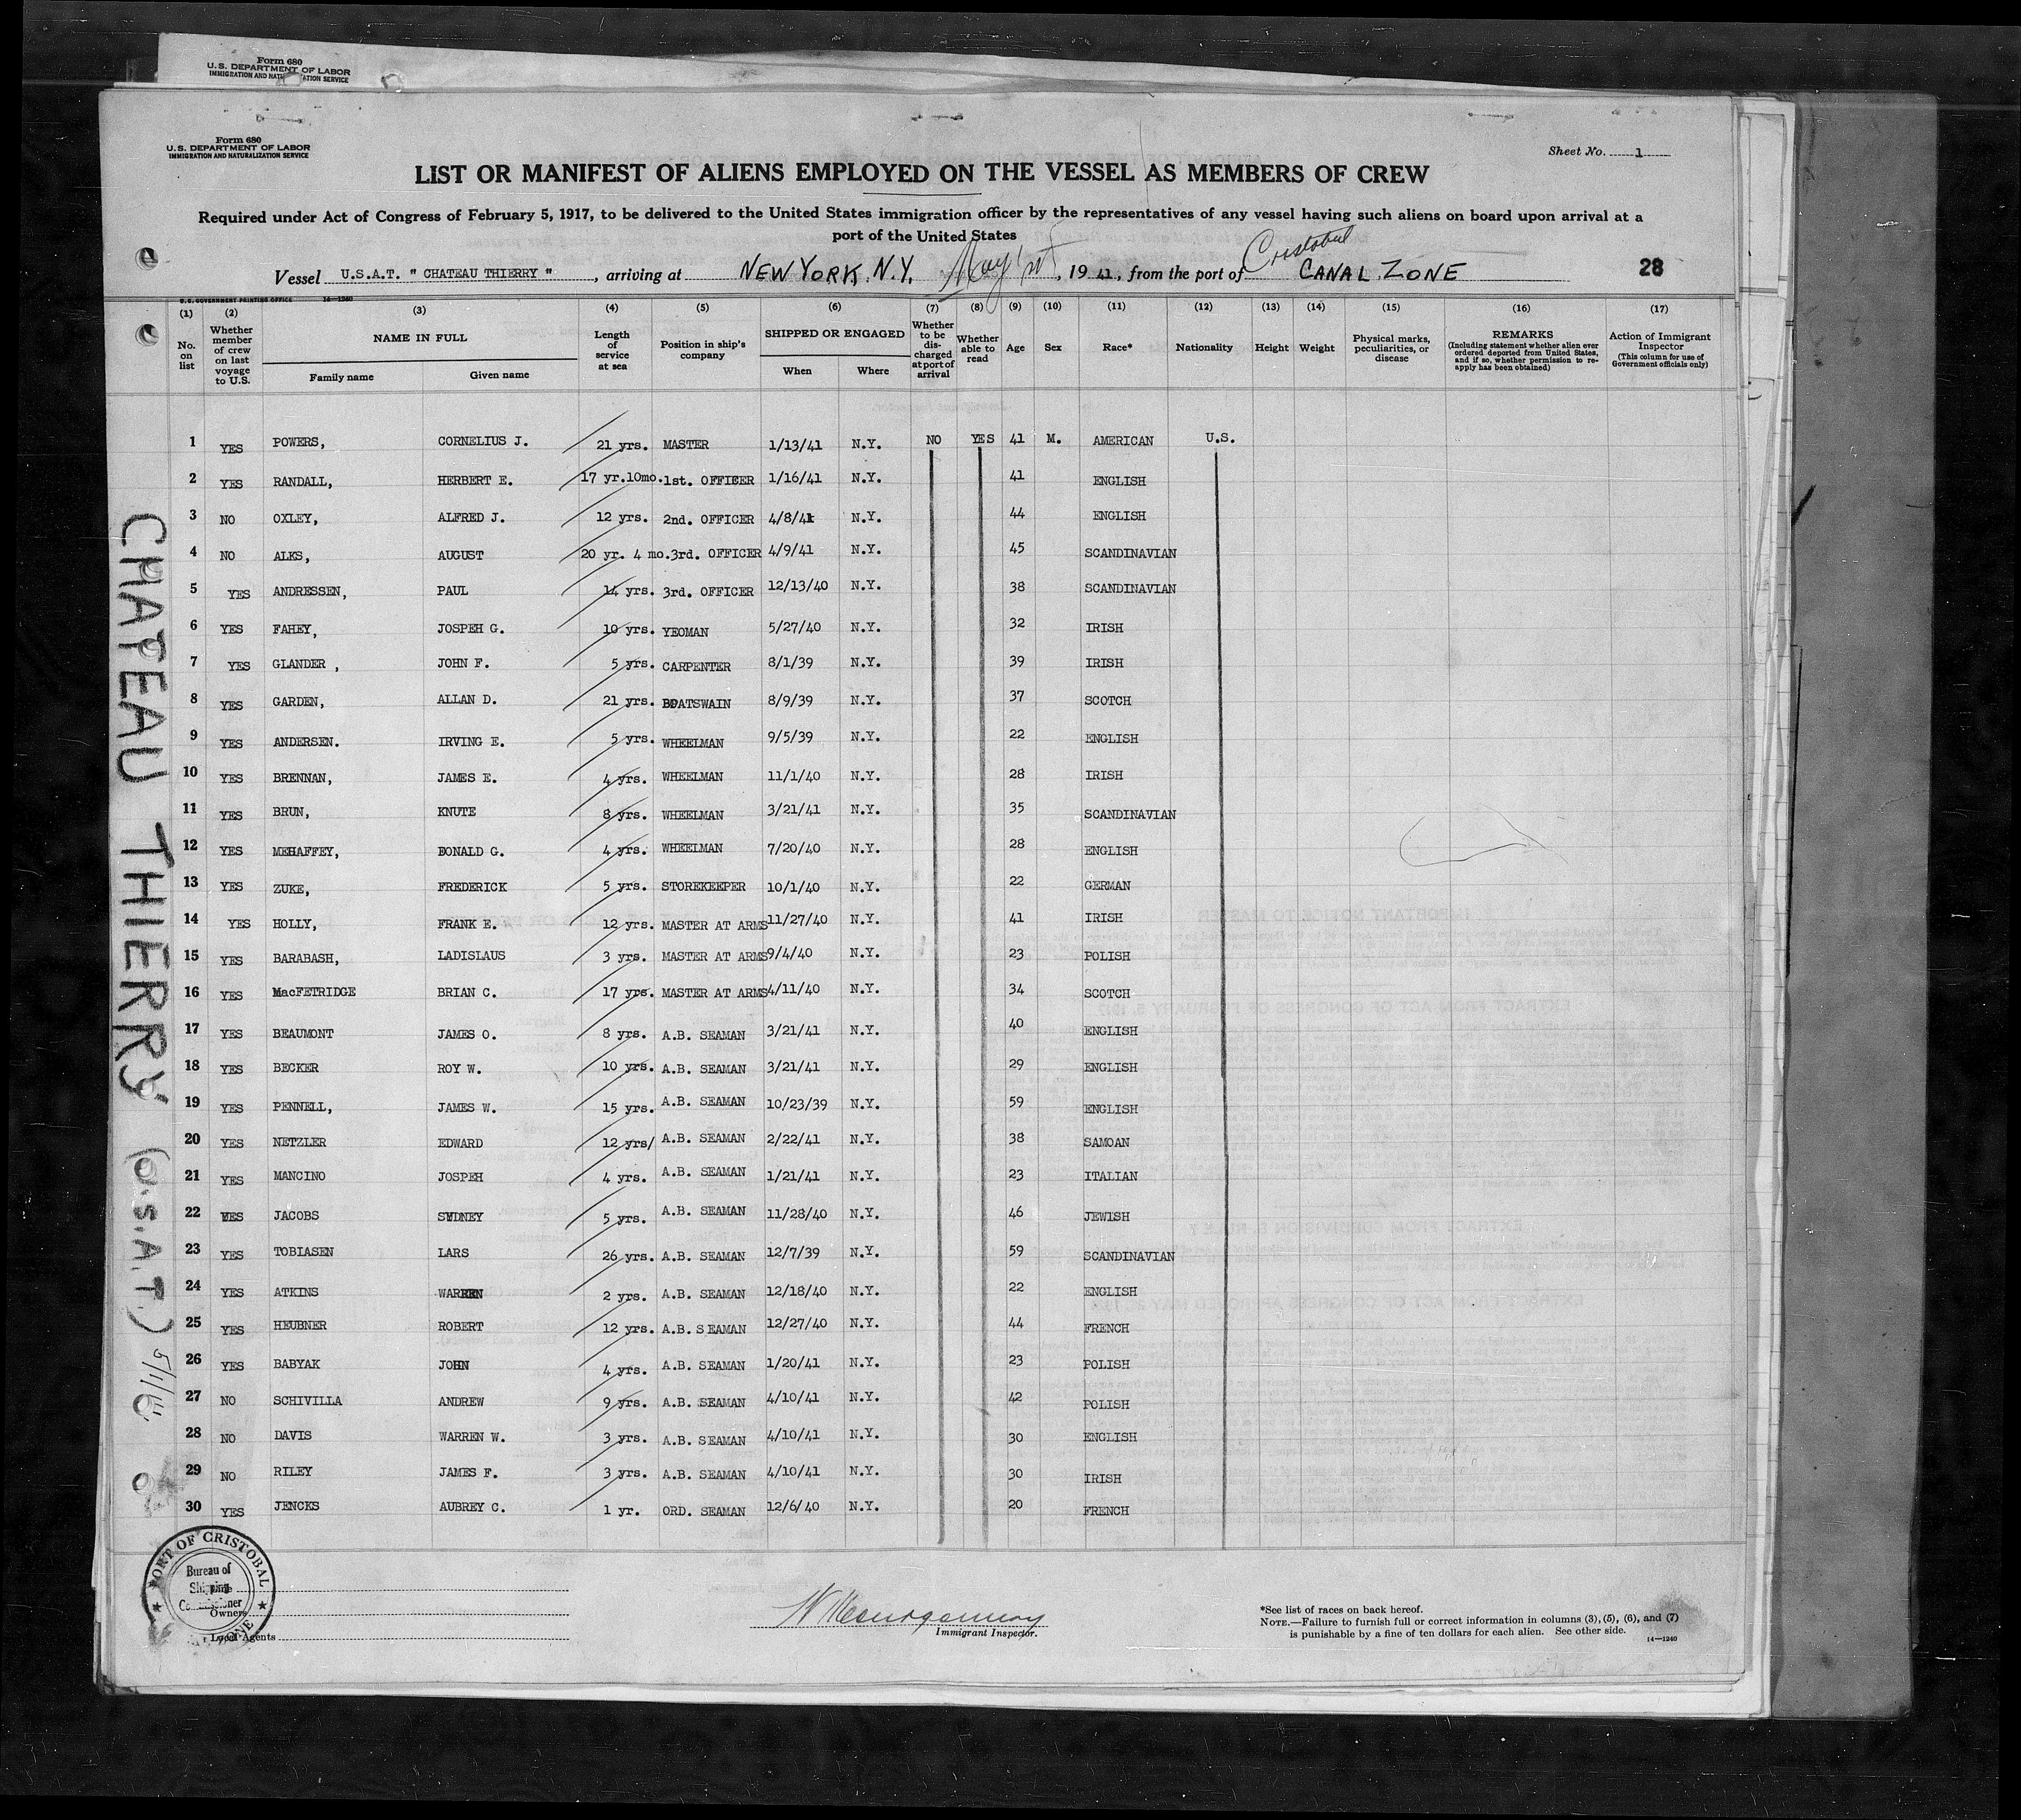 Form 680
U.S. DEPARTMENT OF LABOR
IMMIGRATION AND NATURALIZATION SERVICE
Form 680
U.S. DEPARTMENT OF LABOR
IMMIGRATION AND NATURALIZATION SERVICE
Sheet No. 1
LIST OR MANIFEST OF ALIENS EMPLOYED ON THE VESSEL AS MEMBERS OF CREW
Required under Act of Congress of February 5, 1917, to be delivered to the United States immigration officer by the representatives of any vessel having such aliens on board upon arrival at a
port of the United States
Vessel U.S.A.T. " CHATEAU THIERRY ", arriving at NEW YORK, N.Y. May 1st, 19 41, from the port of Cristobal CANAL ZONE 28
U.S. GOVERNMENT PRINTING OFFICE 14—1240
(1) (2) (3) (4) (5) (6) (7) (8) (9) (10) (11) (12) (13) (14) (15) (16) (17)
No. on list
Whether member of crew on last voyage to U.S.
NAME IN FULL
Family name
Given name
Length of service at sea
Position in ship's company
SHIPPED OR ENGAGED
When
Where
Whether to be discharged at port of arrival
Whether able to read
Age
Sex
Race*
Nationality
Height
Weight
Physical marks, peculiarities, or disease
REMARKS
(Including statement whether alien ever ordered deported from United States, and if so, whether permission to reapply has been obtained)
Action of Immigrant Inspector
(This column for use of Government officials only)
1 YES POWERS, CORNELIUS J. 21 yrs. MASTER 1/13/41 N.Y. NO YES 41 M. AMERICAN U.S.
2 YES RANDALL, HERBERT E. 17 yr.10mo. 1st. OFFICER 1/16/41 N.Y. 41 ENGLISH
3 NO OXLEY, ALFRED J. 12 yrs. 2nd. OFFICER 4/8/41 N.Y. 44 ENGLISH
4 NO ALKS, AUGUST 20 yr. 4 mo. 3rd. OFFICER 4/9/41 N.Y. 45 SCANDINAVIAN
5 YES ANDRESSEN, PAUL 14 yrs. 3rd. OFFICER 12/13/40 N.Y. 38 SCANDINAVIAN
6 YES FAHEY, JOSPEH G. 10 yrs. YEOMAN 5/27/40 N.Y. 32 IRISH
7 YES GLANDER , JOHN F. 5 yrs. CARPENTER 8/1/39 N.Y. 39 IRISH
8 YES GARDEN, ALLAN D. 21 yrs. BOATSWAIN 8/9/39 N.Y. 37 SCOTCH
9 YES ANDERSEN. IRVING E. 5 yrs. WHEELMAN 9/5/39 N.Y. 22 ENGLISH
10 YES BRENNAN, JAMES E. 4 yrs. WHEELMAN 11/1/40 N.Y. 28 IRISH
11 YES BRUN, KNUTE 8 yrs. WHEELMAN 3/21/41 N.Y. 35 SCANDINAVIAN
12 YES MEHAFFEY, DONALD G. 4 yrs. WHEELMAN 7/20/40 N.Y. 28 ENGLISH
13 YES ZUKE, FREDERICK 5 yrs. STOREKEEPER 10/1/40 N.Y. 22 GERMAN
14 YES HOLLY, FRANK E. 12 yrs. MASTER AT ARMS 11/27/40 N.Y. 41 IRISH
15 YES BARABASH, LADISLAUS 3 yrs. MASTER AT ARMS 9/4/40 N.Y. 23 POLISH
16 YES MacFETRIDGE BRIAN C. 17 yrs. MASTER AT ARMS 4/11/40 N.Y. 34 SCOTCH
17 YES BEAUMONT JAMES O. 8 yrs. A.B. SEAMAN 3/21/41 N.Y. 40 ENGLISH
18 YES BECKER ROY W. 10 yrs. A.B. SEAMAN 3/21/41 N.Y. 29 ENGLISH
19 YES PENNELL, JAMES W. 15 yrs. A.B. SEAMAN 10/23/39 N.Y. 59 ENGLISH
20 YES NETZLER EDWARD 12 yrs/ A.B. SEAMAN 2/22/41 N.Y. 38 SAMOAN
21 YES MANCINO JOSPEH 4 yrs. A.B. SEAMAN 1/21/41 N.Y. 23 ITALIAN
22 YES JACOBS SYDNEY 5 yrs. A.B. SEAMAN 11/28/40 N.Y. 46 JEWISH
23 YES TOBIASEN LARS 26 yrs. A.B. SEAMAN 12/7/39 N.Y. 59 SCANDINAVIAN
24 YES ATKINS WARREN 2 yrs. A.B. SEAMAN 12/18/40 N.Y. 22 ENGLISH
25 YES HEUBNER ROBERT 12 yrs. A.B. SEAMAN 12/27/40 N.Y. 44 FRENCH
26 YES BABYAK JOHN 4 yrs. A.B. SEAMAN 1/20/41 N.Y. 23 POLISH
27 NO SCHIVILLA ANDREW 9 yrs. A.B. SEAMAN 4/10/41 N.Y. 42 POLISH
28 NO DAVIS WARREN W. 3 yrs. A.B. SEAMAN 4/10/41 N.Y. 30 ENGLISH
29 NO RILEY JAMES F. 3 yrs. A.B. SEAMAN 4/10/41 N.Y. 30 IRISH
30 YES JENCKS AUBREY C. 1 yr. ORD. SEAMAN 12/6/40 N.Y. 20 FRENCH
CHATEAU THIERRY (U.S.A.T.) 5/1/41
PORT OF CRISTOBAL
Bureau of
Shipping
Commissioner
Owners
Local Agents
W Montgomery
Immigrant Inspector.
*See list of races on back hereof.
NOTE.—Failure to furnish full or correct information in columns (3), (5), (6), and (7)
is punishable by a fine of ten dollars for each alien. See other side.
14—1240